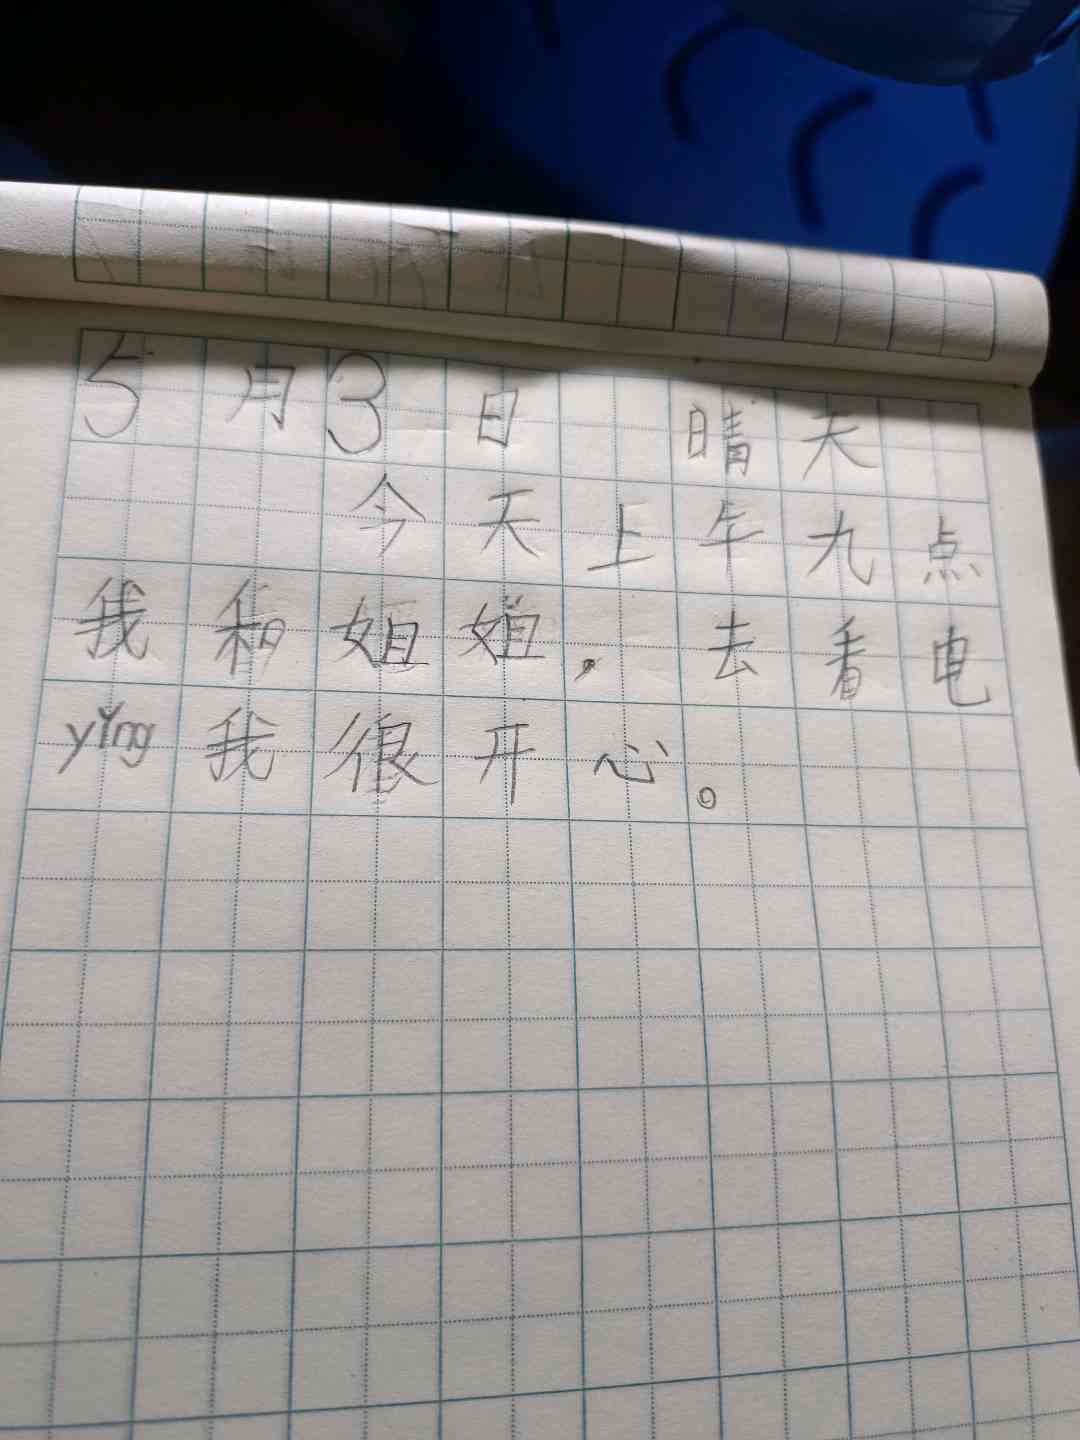 5月3日 晴天
今天上午九点
我和姐姐，去看电
yǐng我很开心。